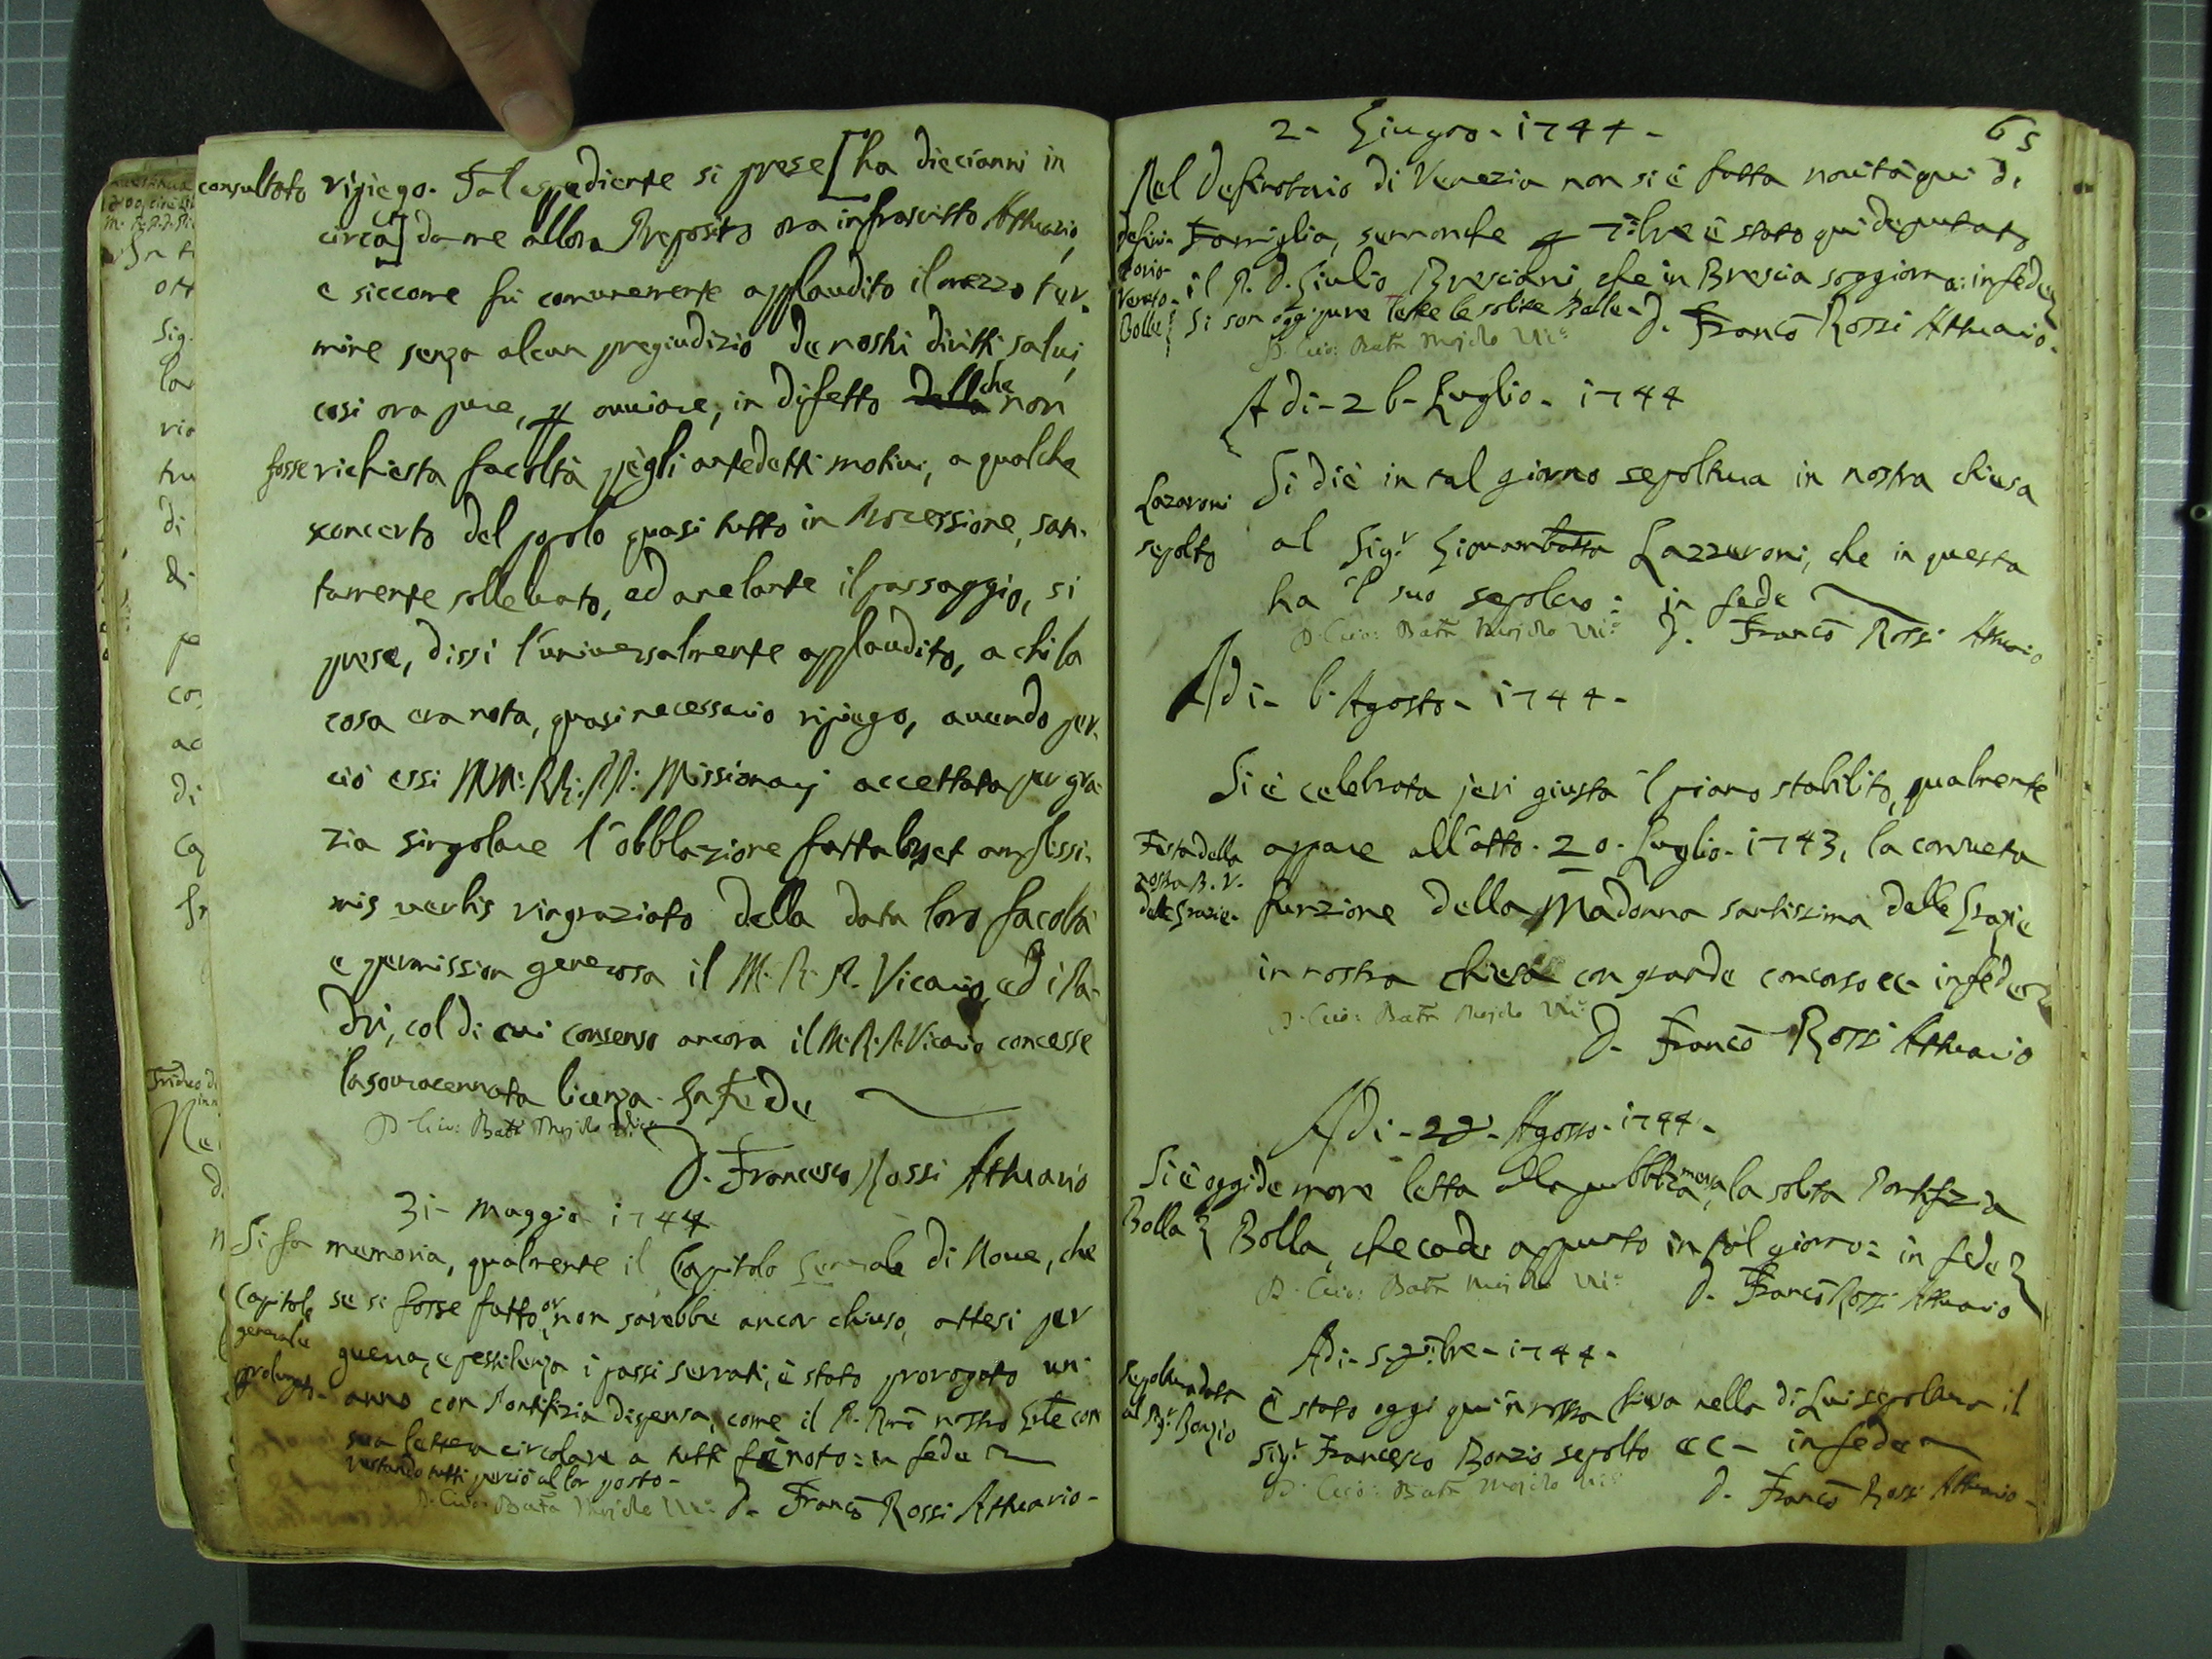 consultato ripiego. Tal espediente si prese [ha diecianni in
circa] da me allora Preposito ora infrascritto Attuario,
e siccome fù comunemente applaudito il mezzo ter-
mine senza alcun pregiudizio de nostri diritti salvi,
così ora pure, p ovviare, in difetto della che non
fosse richiesta facoltà pègli antedetti motivi, a qualche
sconcerto del popolo quasi tutto in Processione, san-
tamente sollevato, ed anelante il passaggio, si
prese, dissi l'universalmente applaudito, a chi la
cosa era nota, quasi necessario ripiego, avendo per-
ciò essi MM: RR: PP: Missionarj accettata per gra-
zia singolare l'obblazione fatta, et amplissi-
mis verbis ringraziato della data loro facoltà
e permission generosa il M. R. P. Vicario, ed i Pa-
dri, col di cui consenso ancora il M. R. P. Vicario concesse
la sovracennata licenza. In Fede
D. Gio: Batta Vic:
D. Francesco Rossi Attuario
31- Maggio 1744
Si fa memoria, qualmente il Capitolo Generale di Nove, che
Capitolo generale prolungato-
se si fosse fatto, or non sarebbe ancor chiuso, attesi per
guerra, e pestilenza i passi serrati, è stato prorogato un'
anno con Pontifizia dispensa, come il P. Rmo nostro Gnle con
sua lettera circolare a tutti fè noto: in fede
restando tutti perciò al lor posto-
D. Gio: Batta Vic: D. Franco Rossi Attuario-
2- Giugno- 1744- 65
Nel Definitorio di Venezia non si è fatta novità qui di
Defini-
torio
Veneto-
Famiglia, sennonche p è stato qui deputato
il P. D. Giulio Bresciani, che in Brescia soggiorna: in fede
Bolle} Si son oggi pure lette le solite Bolle- D. Franco Rossi Attuario-
D. Gio: Batta Vic:
A di- 26- Luglio- 1744
Lazaroni
sepolto
Si diè in tal giorno sepoltura in nostra chiesa
al Sigr Giovambatta Lazzaroni, che in questa
ha 'l suo sepolcro: in fede
D. Gio: Batta Vic: D. Franco Rossi Attuario
A di- 6- Agosto- 1744-
Si è celebrata jeri giusta 'l piano stabilito, qualmente
Festa della
nostra B. V.
delle Grazie-
appare all'atto- 20- Luglio- 1743, la consueta
funzione della Madonna santissima delle Grazie
in nostra chiesa con grande concorso ec- in fede
D. Gio: Batta Vic:
D. Franco Rossi Attuario
A di- 22- Agosto- 1744-
Si è oggi de more letta alla pubblica mensa, la solita Pontifizia
Bolla} Bolla, che cade appunto in tal giorno: in fede
D. Gio: Batta Vic: D. Franco Rossi Attuario
A di- 5- 7bre- 1744-
Sepoltura data
al Sigr Bonzio
È stato oggi qui in nostra chiesa nella di Lui sepoltura il
Sigr Francesco Bonzio sepolto ec- in fede
D. Gio: Batta Vic: D. Franco Rossi Attuario-